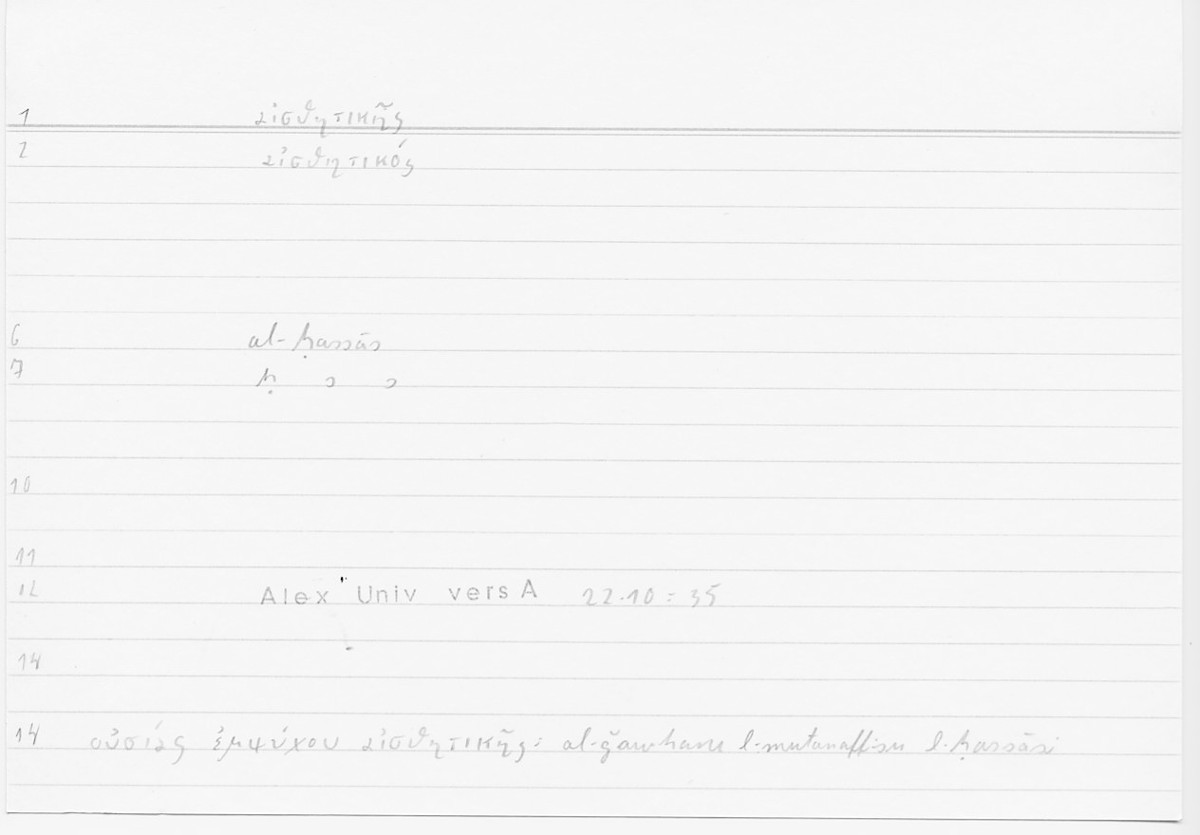 1 αἰσθητικῆς
2 αἰσθητικός
6 al-ḥassās
7 ḥ s s
10
11
12 Alex Univ vers A 22.10 = 35
14
14 οὐσίας ἐμψύχου αἰσθητικῆς: al-ǧawharu l-mutanaffisu l-ḥassāsi